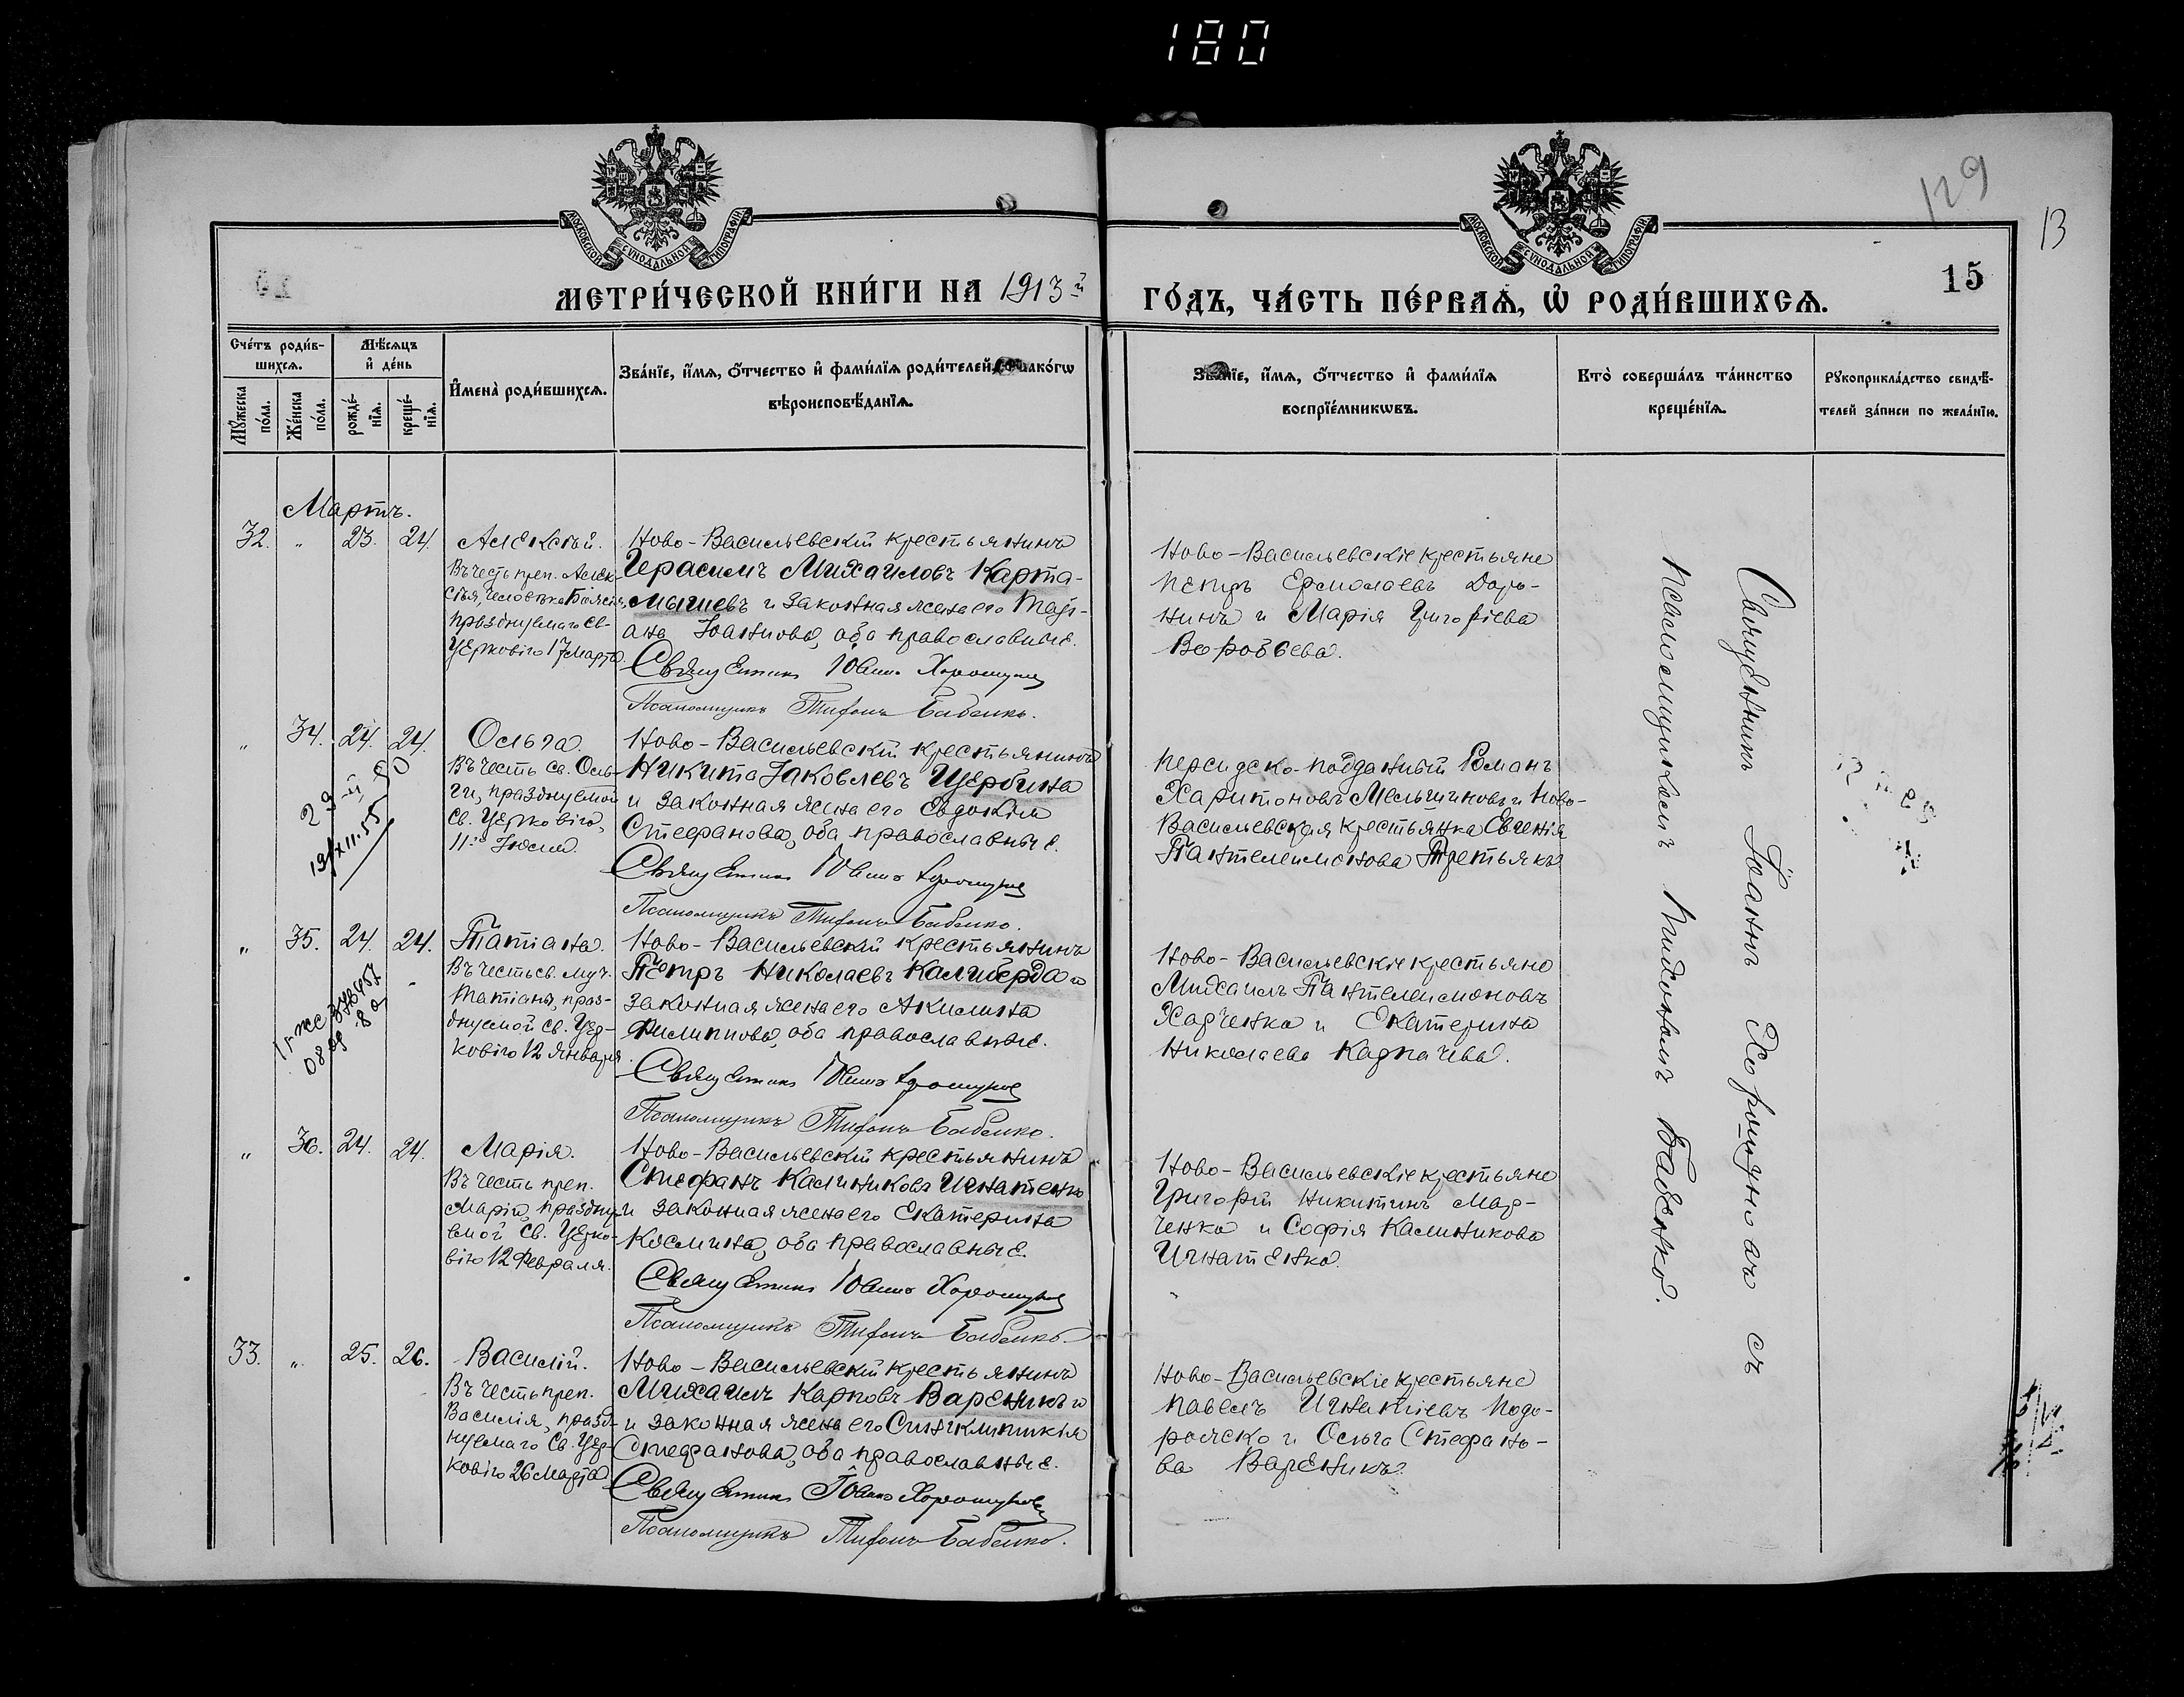 180
129
13
15
МОСКОВСКОЙ СѴНОДАЛЬНОЙ ТИПОГРАФІИ
МОСКОВСКОЙ СѴНОДАЛЬНОЙ ТИПОГРАФІИ
МЕТРИ́ЧЕСКОЙ КНИ́ГИ НА 1913й
ГО́ДЪ, ЧА́СТЬ ПЕ́РВАѦ, Ѡ РОДИ́ВШИХСѦ.
Сче́тъ роди́в-
шихсѧ.
Мꙋжеска по́ла.
Же́нска по́ла.
Мѣ́сѧцъ
и҆ де́нь
рожде́-
нїѧ.
креще́-
нїѧ.
И҆мена̀ роди́вшихсѧ.
Зва́нїе, и҆́мѧ, ѻ҆́тчество и҆ фами́лїѧ роди́телей, и како́гѡ
вѣроисповѣ́данїѧ.
Зва́нїе, и҆́мѧ, ѻ҆́тчество и҆ фами́лїѧ
воспрїе́мникѡвъ.
Кто̀ соверша́лъ та́инство
креще́нїѧ.
Рꙋкоприкла́дство свидѣ́-
телей за́писи по жела́нїю.
Мартъ.
32. " 23. 24.
Алексѣй.
Въ честь преп. Алек-
сѣя, человѣка Божія,
празднуемаго Св.
Церковію 17 Марта.
Ново-Васильевскій крестьянинъ
Герасимъ Михаиловъ Карта-
мышевъ и законная жена его Тать-
ана Іоаннова, оба православные.
Священникъ Іоаннъ Хорошунъ
Псаломщикъ Тифонъ Бабенко.
Ново-Васильевскіе крестьяне
Петръ Ермолаевъ Доро-
нинъ и Марія Григоріева
Воробьева.
" 34. 24. 24.
29-й, 50
19/XII.55
Ольга.
Въ честь св. Оль-
ги, празднуемой
Св. Церковію,
11го Іюля.
Ново-Васильевскій крестьянинъ
Никита Іаковлевъ Щербина
и законная жена его Евдокія
Стефанова, оба православные.
Священникъ Іоаннъ Хорошунъ
Псаломщикъ Тифонъ Бабенко.
Персидско-подданный Романъ
Харитоновъ Мельниковъ и Ново-
Васильевская крестьянка Евгенія
Пантелеимонова Третьякъ
" 35. 24. 24.
Татіана.
Въ честь св. муч.
Татіаны, праз-
днуемой Св. Цер-
ковію 12 Января.
Ново-Васильевскій крестьянинъ
Петръ Николаевъ Калиберда и
законная жена его Акилина
Филиппова, оба православные.
Священникъ Іоаннъ Хорошунъ
Псаломщикъ Тифонъ Бабенко.
Ново-Васильевскіе крестьяне
Михаилъ Пантелеимоновъ
Харченко и Екатерина
Николаева Карпачева.
" 36. 24. 24.
Марія.
Въ честь преп.
Маріи, праздну-
емой Св. Церко-
вію 12 Февраля.
Ново-Васильевскій крестьянинъ
Стефанъ Калиниковъ Игнатенко
и законная жена его Екатерина
Космина, оба православные.
Священникъ Іоаннъ Хорошунъ
Псаломщикъ Тифонъ Бабенко.
Ново-Васильевскіе крестьяне
Григорій Никитинъ Мар-
ченко и Софія Калиникова
Игнатенко.
33. " 25. 26.
Василій.
Въ честь преп.
Василія, празд-
нуемаго Св. Цер-
ковію 26 Марта.
Ново-Васильевскій крестьянинъ
Михаилъ Карповъ Вареникъ и
и законная жена его Синклитикія
Стефанова, оба православные.
Священникъ Іоаннъ Хорошунъ
Псаломщикъ Тифонъ Бабенко.
Ново-Васильевскіе крестьяне
Павелъ Игнатіевъ Подо-
рожско и Ольга Стефано-
ва Вареникъ.
Священникъ Іоаннъ Хорошуновъ съ
псаломщикомъ Тифономъ Бабенко.